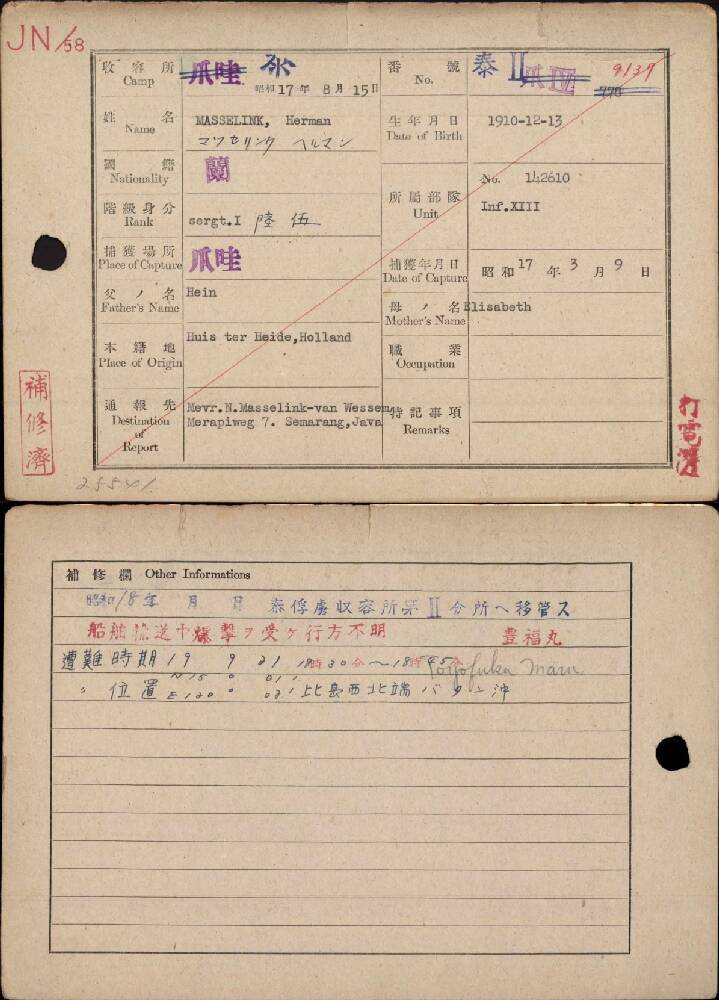 JN/58
收容所 Camp 爪哇 昭和17年8月15日
番號 No. 泰 II 爪 IV 9139
姓名 Name MASSELINK, Herman
マツセリンク ヘルマン
生年月日 Date of Birth 1910-12-13
國籍 Nationality 蘭
階級身分 Rank sergt.I 陸 伍
所屬部隊 Unit No. 142610
Inf.XIII
捕獲場所 Place of Capture 爪哇
捕獲年月日 Date of Capture 昭和17年3月9日
父ノ名 Father's Name Hein
母ノ名 Mother's Name Elisabeth
本籍地 Place of Origin Huis ter Heide,Holland
職業 Occupation
通報先 Destination of Report Mevr.N.Masselink-van Wessem
Merapiweg 7. Semarang,Java
特記事項 Remarks
補修濟
打電濟
補修欄 Other Informations
昭和18年 月 日 泰俘虜収容所第II分所ヘ移管ス
船舶輸送中爆撃ヲ受ケ行方不明 豊福丸
遭難時期 19 9 21 18時30分〜18時45分
Toyofuku Maru
〃 位置 N 15° 01' E 120° 02' 比島西北端バタン沖